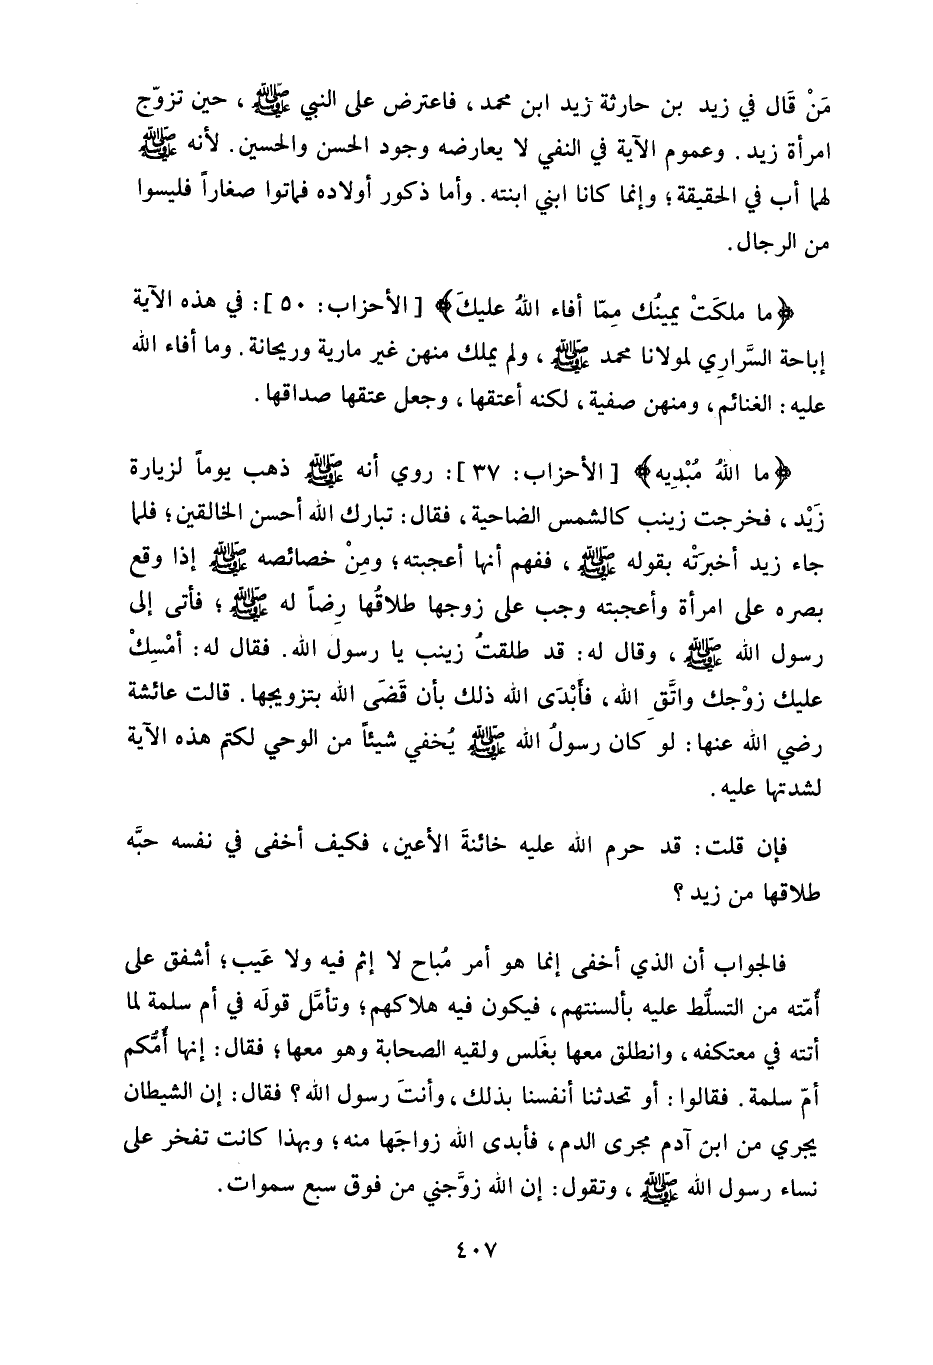 مَنْ قَال في زيد بن حارثة زيد ابن محمد ، فاعترض على النبي ﷺ ، حين تزوّج
امرأة زيد . وعموم الآية في النفي لا يعارضه وجود الحسن والحسين . لأنه ﷺ
لهما أب في الحقيقة ؛ وإنما كانا ابني ابنته . وأما ذكور أولاده فماتوا صغاراً فليسوا
من الرجال .
﴿ما ملكَتْ يمينُك مِمّا أفاء اللهُ عليكَ﴾ [ الأحزاب : ٥٠ ] : في هذه الآية
إباحة السَّرارِي لمولانا محمد ﷺ ، ولم يملك منهن غير مارية وريحانة . وما أفاء الله
عليه : الغنائم ، ومنهن صفية ، لكنه أعتقها ، وجعل عتقها صداقها .
﴿ما اللهُ مُبْدِيه﴾ [ الأحزاب : ٣٧ ] : روي أنه ﷺ ذهب يوماً لزيارة
زَيْد ، فخرجت زينب كالشمس الضاحية ، فقال : تبارك الله أحسن الخالقين ؛ فلما
جاء زيد أخبرَتْه بقوله ﷺ ، ففهم أنها أعجبته ؛ ومِنْ خصائصه ﷺ إذا وقع
بصره على امرأة وأعجبته وجب على زوجها طلاقُها رِضاً له ﷺ ؛ فأتى إلى
رسول الله ﷺ ، وقال له : قد طلقتُ زينب يا رسول الله . فقال له : أمْسِكْ
عليك زوْجك واتَّقِ الله ، فأَبْدَى الله ذلك بأن قَضَى الله بتزويجها . قالت عائشة
رضي الله عنها : لو كان رسولُ الله ﷺ يُخفي شيئاً من الوحي لكتم هذه الآية
لشدتها عليه .
فإن قلت : قد حرم الله عليه خائنةَ الأعين ، فكيف أخفى في نفسه حبَّه
طلاقها من زيد ؟
فالجواب أن الذي أخفى إنما هو أمر مُباح لا إثم فيه ولا عَيب ؛ أشفق على
أُمّته من التسلُّط عليه بألسنتهم ، فيكون فيه هلاكهم ؛ وتأمَّل قولَه في أم سلمة لما
أتته في معتكفه ، وانطلق معها بغَلس ولقيه الصحابة وهو معها ؛ فقال : إنها أُمُّكم
أمّ سلمة . فقالوا : أو تحدثنا أنفسنا بذلك ، وأنتَ رسول الله ؟ فقال : إن الشيطان
يجري من ابن آدم مجرى الدم ، فأبدى الله زواجَها منه ؛ وبهذا كانت تفخر على
نساء رسول الله ﷺ ، وتقول : إن الله زوَّجني من فوق سبع سموات .
٤٠٧